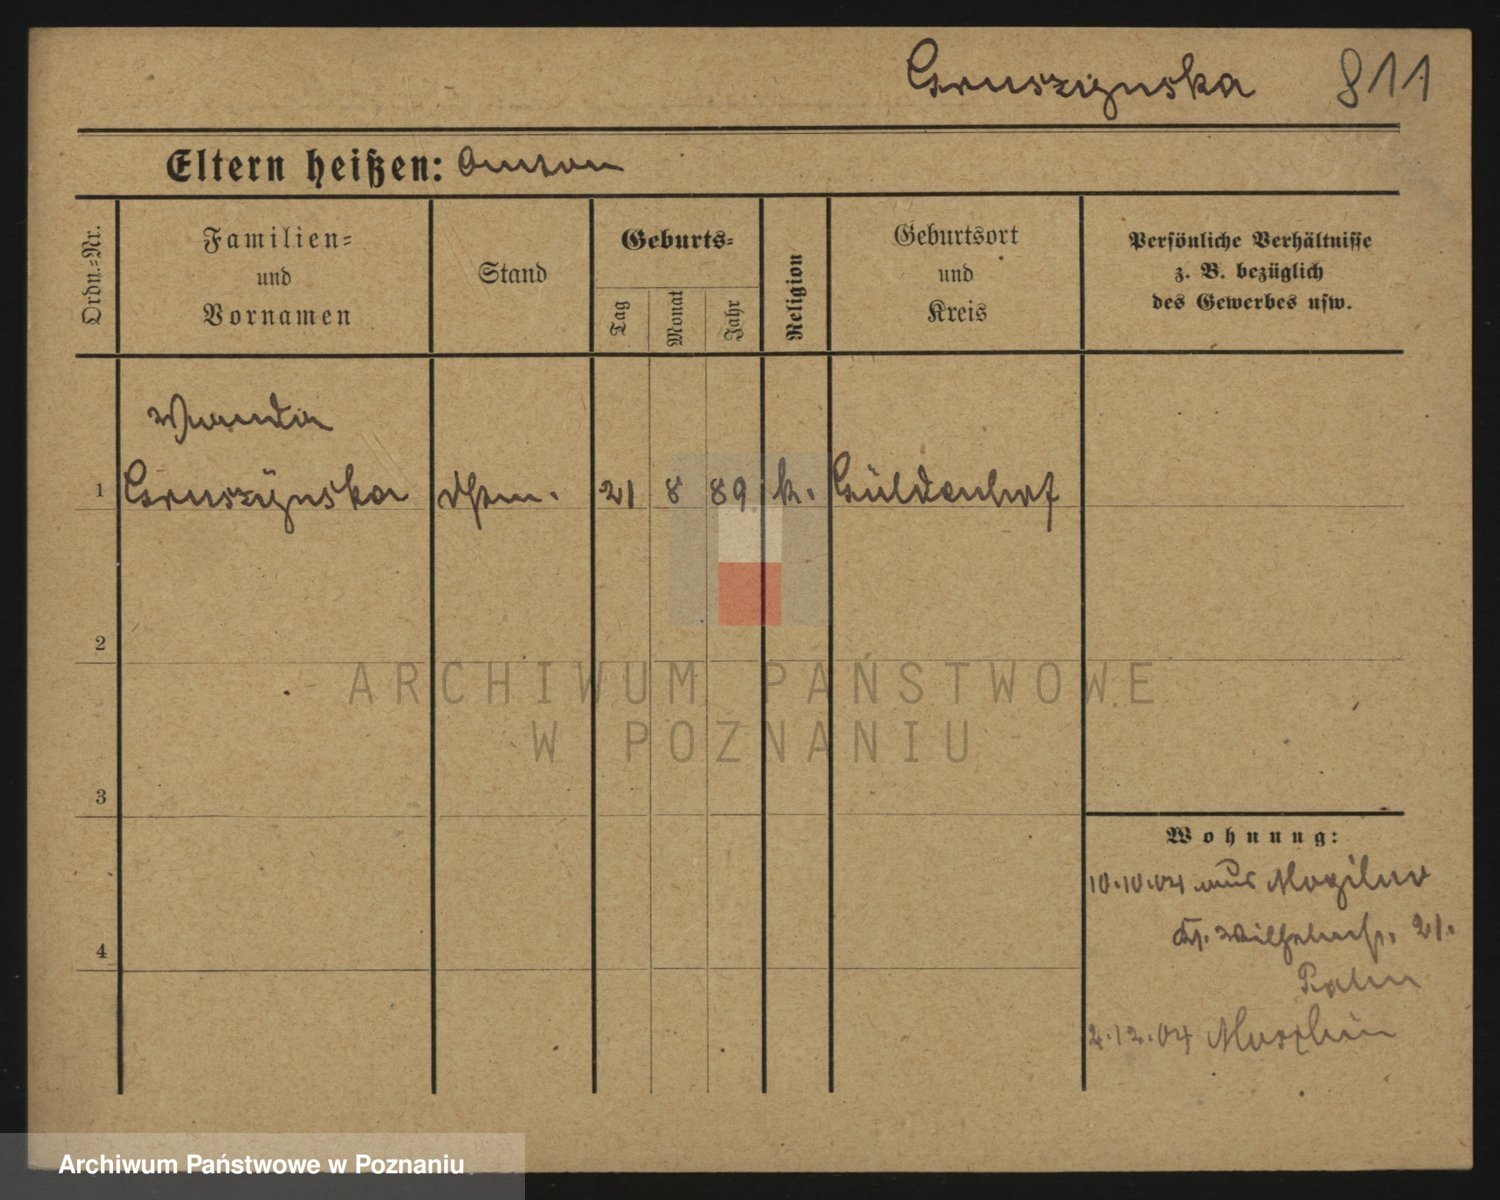 Gruszynska 811
Eltern heißen: Anton
Ordn.-Nr.
Familien-
und
Vornamen
Stand
Geburts-
Tag
Monat
Jahr
Religion
Geburtsort
und
Kreis
Persönliche Verhältnisse
z. B. bezüglich
des Gewerbes usw.
Wanda
1 Gruszÿnska 21 8 89 k. Güldenhof
2
3
4
Wohnung:
10.10.04 aus Mogilno
Wilhelmstr. 21.
2.12.04
ARCHIWUM PAŃSTWOWE
W POZNANIU
Archiwum Państwowe w Poznaniu